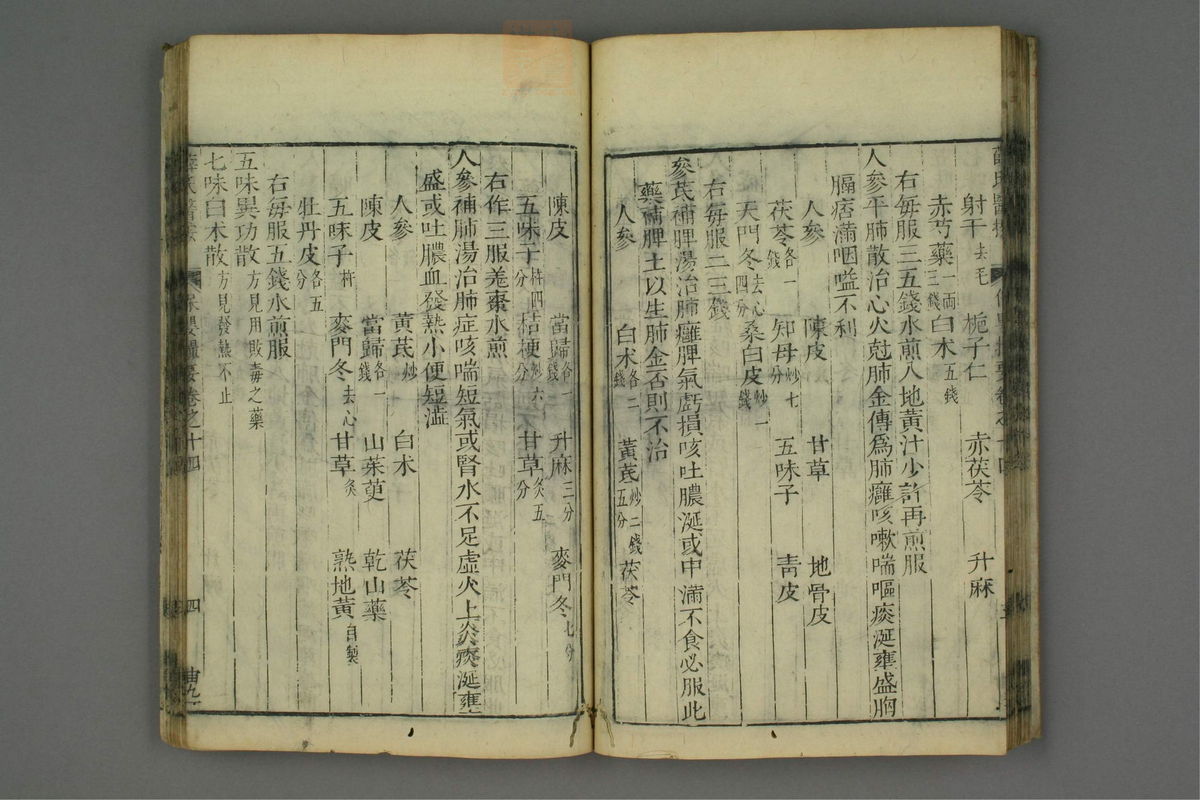 射干去毛　梔子仁　赤茯苓　升麻
赤芍藥一兩三錢　白术五錢
右每服三五錢水煎入地黃汁少許再煎服
人參平肺散治心火尅肺金傳爲肺癰咳嗽喘嘔痰涎壅盛胸
膈痞滿咽嗌不利
人參　陳皮　甘草　地骨皮
茯苓各一錢　知母炒七分　五味子　靑皮
天門冬去心四分　桑白皮炒一錢
右每服二三錢
參芪補脾湯治肺癰脾氣虧損咳吐膿涎或中滿不食必服此
藥補脾土以生肺金否則不治
人參　白术各二錢　黃芪炒二錢五分　茯苓
陳皮　當歸各一錢　升麻三分　麥門冬七分
五味子杵四分　桔梗炒六分　甘草炙五分
右作三服羌棗水煎
人參補肺湯治肺症咳喘短氣或腎水不足虛火上炎痰涎壅
盛或吐膿血發熱小便短澁
人參　黃芪炒　白术　茯苓
陳皮　當歸各一錢　山茱萸　乾山藥
五味子杵　麥門冬去心　甘草炙　熟地黃自製
牡丹皮各五分
右每服五錢水煎服
五味異功散方見用敗毒之藥
七味白术散方見發熱不止
薛氏醫案　保嬰撮要卷之十四　四